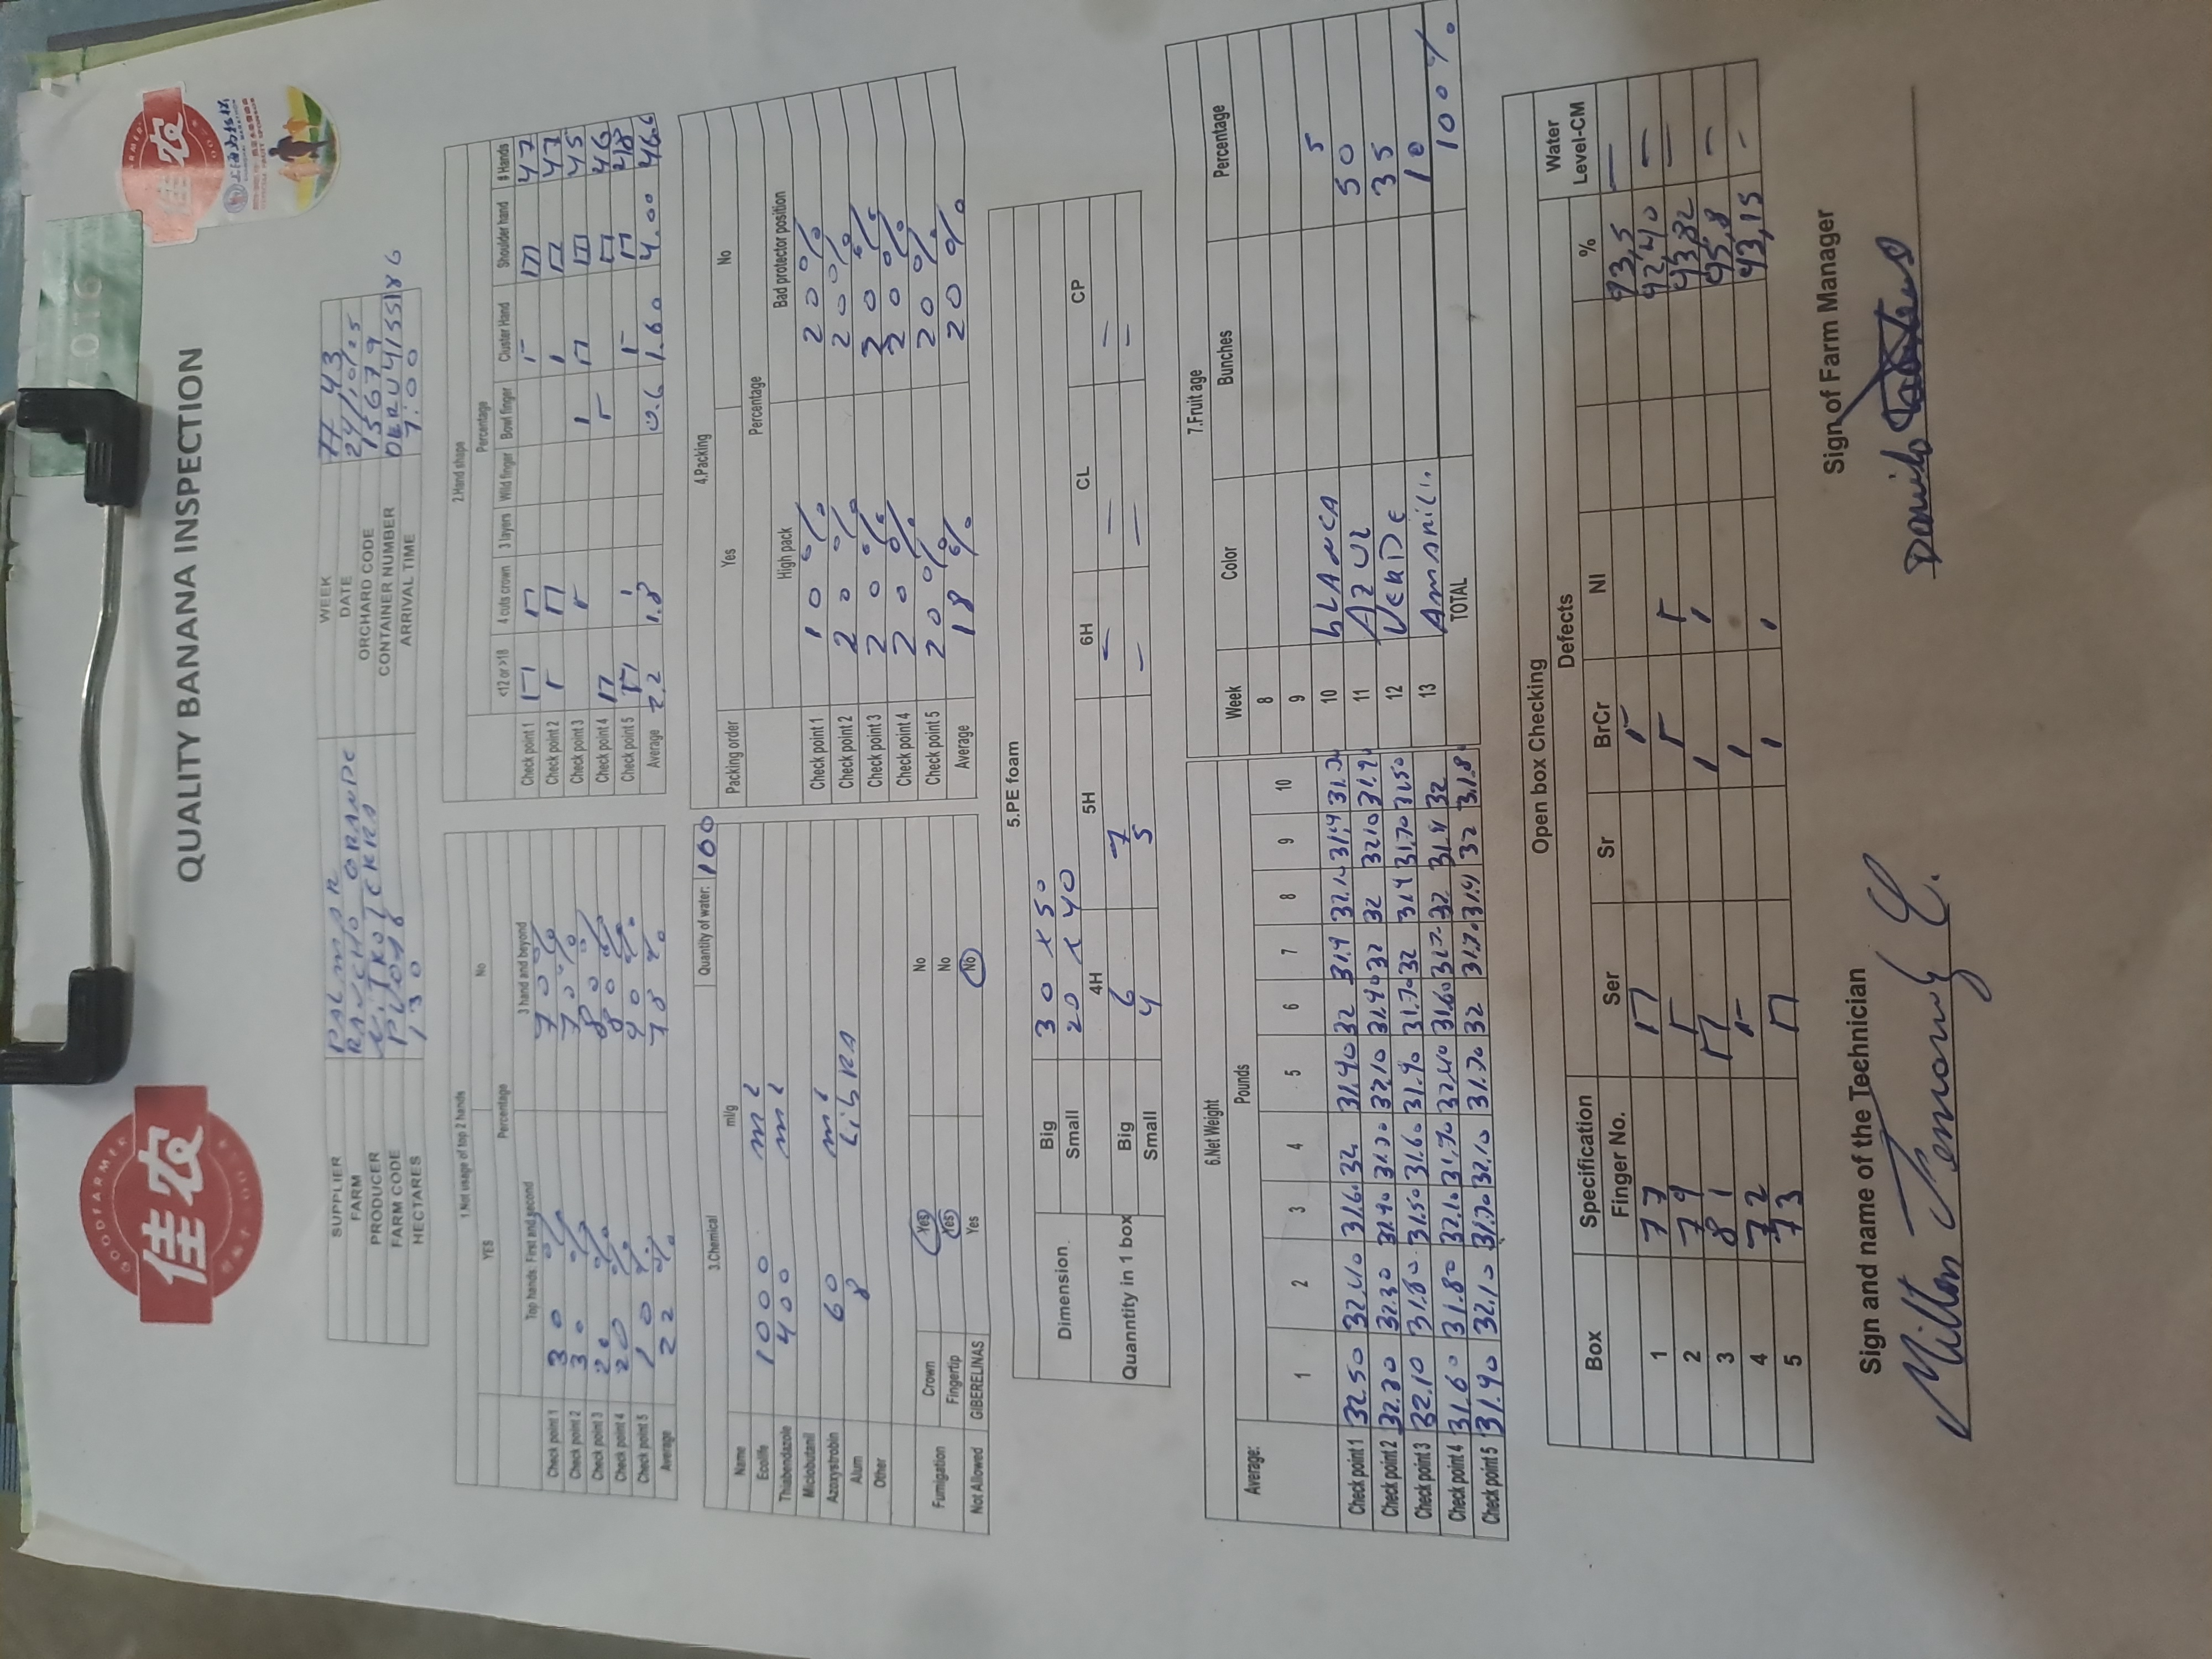 GOODFARMER
佳农
016
QUALITY BANANA INSPECTION
佳农
SHANGHAI MARATHON
SUPPLIER PALMAR WEEK 43
FARM RANCHO GRANDE DATE 24/10/25
PRODUCER NITROTERRA ORCHARD CODE 15679
FARM CODE CONTAINER NUMBER
HECTARES 130 ARRIVAL TIME 7:00
1.Not usage of top 2 hands
YES No
Percentage
Top hands: First and second 3 hand and beyond
Check point 1 30 % 70%
Check point 2 30 % 70%
Check point 3 20 % 80 %
Check point 4 20 % 80 %
Check point 5 10 % 90 %
Average 22 % 78 %
2.Hand shape
Percentage
<12 or >18 4 cuts crown 3 layers Wild finger Bowl finger Cluster Hand Shoulder hand # Hands
Check point 1 47
Check point 2 47
Check point 3 45
Check point 4 46
Check point 5 48
Average 2.2 1.8 0.6 1.60 4.00 46.6
3.Chemical Quantity of water: 100
Name ml/g
Ecolife 1000 ml
Thiabendazole 400 ml
Miclobutanil
Azoxystrobin 60 ml
Alum 8 LibRA
Other
Fumigation Crown Yes No
Fingertip Yes No
Not Allowed GIBERELINAS Yes No
4.Packing
Packing order Yes No
Percentage
High pack Bad protector position
Check point 1 10 % 20%
Check point 2 20 % 20%
Check point 3 20 % 20 %
Check point 4 20 % 20%
Check point 5 20 % 20 %
Average 18 % 20 %
5.PE foam
Dimension. Big 30 x 50
Small 20 x 40
4H 5H 6H CL CP
Quanntity in 1 box Big 6 7 - - -
Small 4 5 - - -
6.Net Weight
Average: Pounds
1 2 3 4 5 6 7 8 9 10
Check point 1 32.50 32.40 31.60 32 31.90 32 31.9
Check point 2 32.30 32.30 31.90 32.10 31.90 32 32 32.10
Check point 3 32.10 31.80 31.50 31.60 31.90 31.70 32 31.9 31.70 31.50
Check point 4 31.60 31.80 32.10 31.90 32.40 31.60 32 32
Check point 5 31.90 32.10 31.70 32.10 31.70 32 31.9 32 31.8
7.Fruit age
Week Color Bunches Percentage
8
9
10 bLANCA 5
11 AZUL 50
12 VERDE 35
13 AMARILL. 10
TOTAL 100%
Open box Checking
Box Specification Defects Water Level-CM
Finger No. Ser Sr BrCr NI %
1 77 93,5 -
2 79 92,40 -
3 81 93,82 -
4 72 95,8 -
5 73 93,15 -
Sign and name of the Technician
Sign of Farm Manager
Milton
Danilo